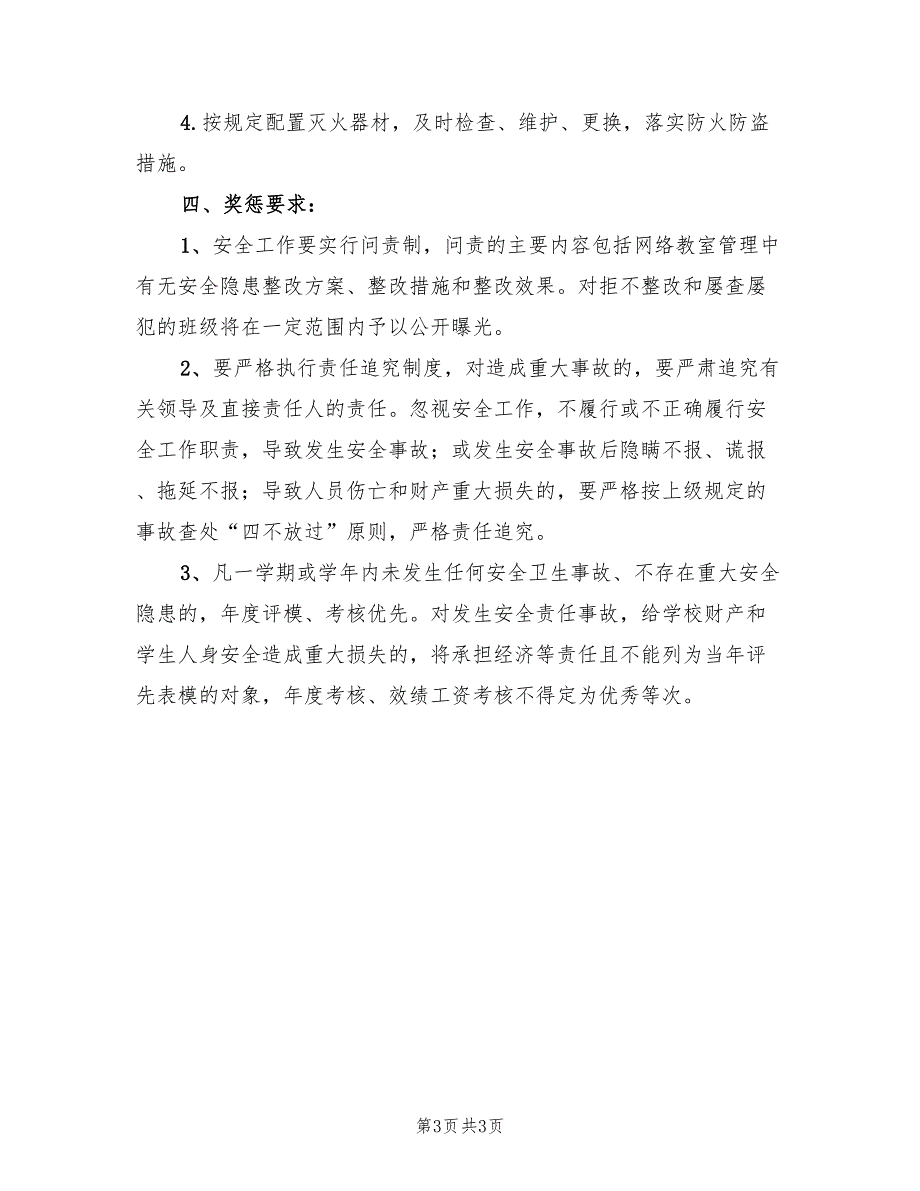 4. 按规定配置灭火器材，及时检查、维护、更换，落实防火防盗
措施。
四、奖惩要求：
1、安全工作要实行问责制，问责的主要内容包括网络教室管理中
有无安全隐患整改方案、整改措施和整改效果。对拒不整改和屡查屡
犯的班级将在一定范围内予以公开曝光。
2、要严格执行责任追究制度，对造成重大事故的，要严肃追究有
关领导及直接责任人的责任。忽视安全工作，不履行或不正确履行安
全工作职责，导致发生安全事故；或发生安全事故后隐瞒不报、谎报
、拖延不报；导致人员伤亡和财产重大损失的，要严格按上级规定的
事故查处“四不放过”原则，严格责任追究。
3、凡一学期或学年内未发生任何安全卫生事故、不存在重大安全
隐患的，年度评模、考核优先。对发生安全责任事故，给学校财产和
学生人身安全造成重大损失的，将承担经济等责任且不能列为当年评
先表模的对象，年度考核、效绩工资考核不得定为优秀等次。
第3页 共3页